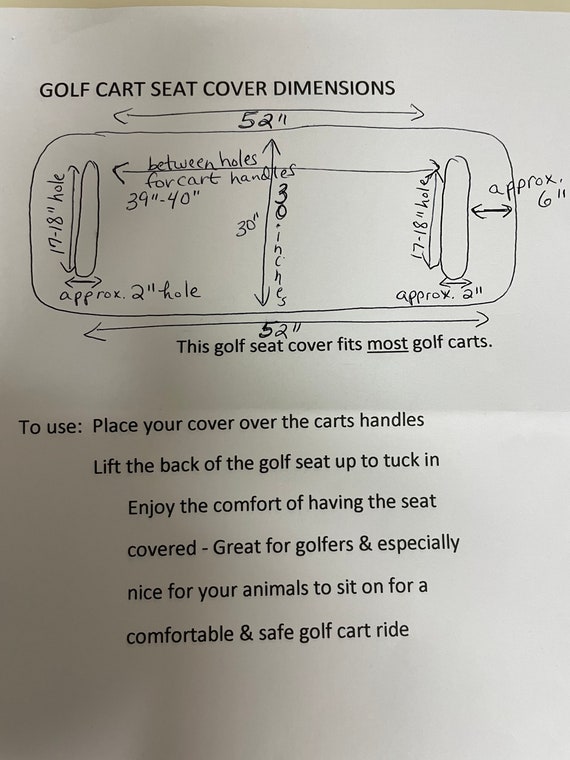 GOLF CART SEAT COVER DIMENSIONS
52"
between holes
for cart handles
39"-40"
17-18" hole
30"
30 inches
17-18" hole
approx.
6"
approx. 2" hole
approx. 2"
52"
This golf seat cover fits most golf carts.
To use: Place your cover over the carts handles
Lift the back of the golf seat up to tuck in
Enjoy the comfort of having the seat
covered - Great for golfers & especially
nice for your animals to sit on for a
comfortable & safe golf cart ride